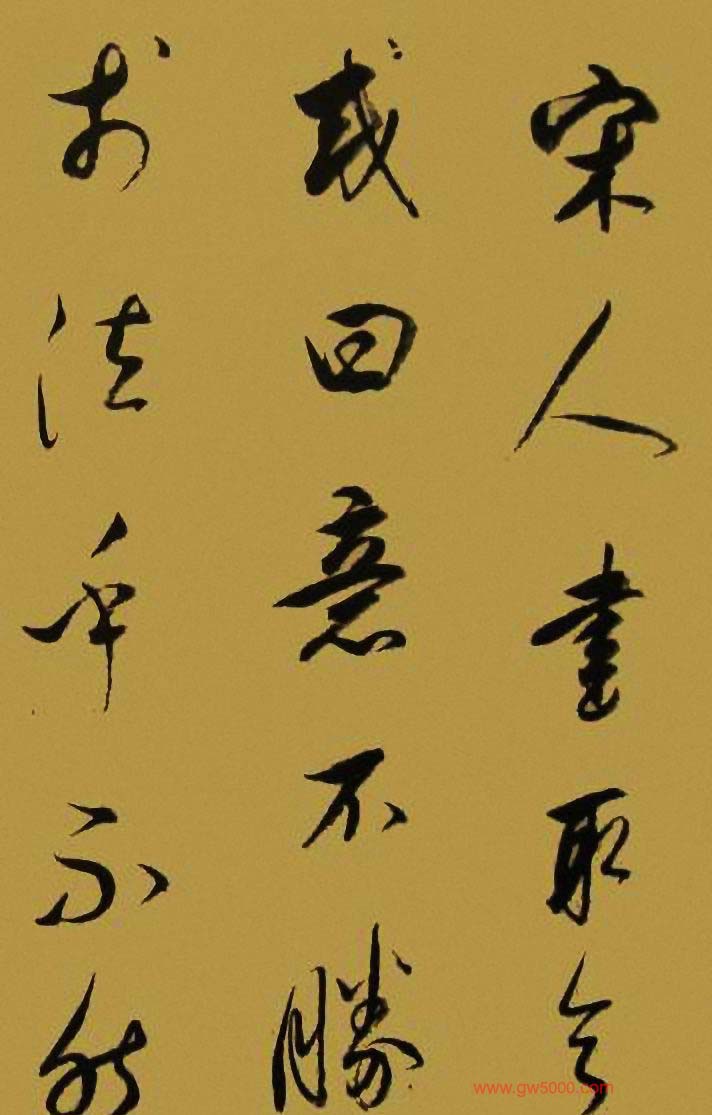 宋人書取意
或曰意不勝
於法乎不然
www.gw5000.com